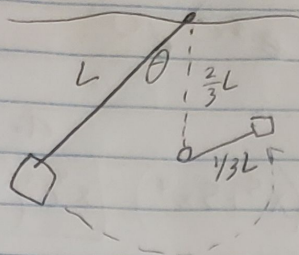 L
θ
2/3 L
1/3 L